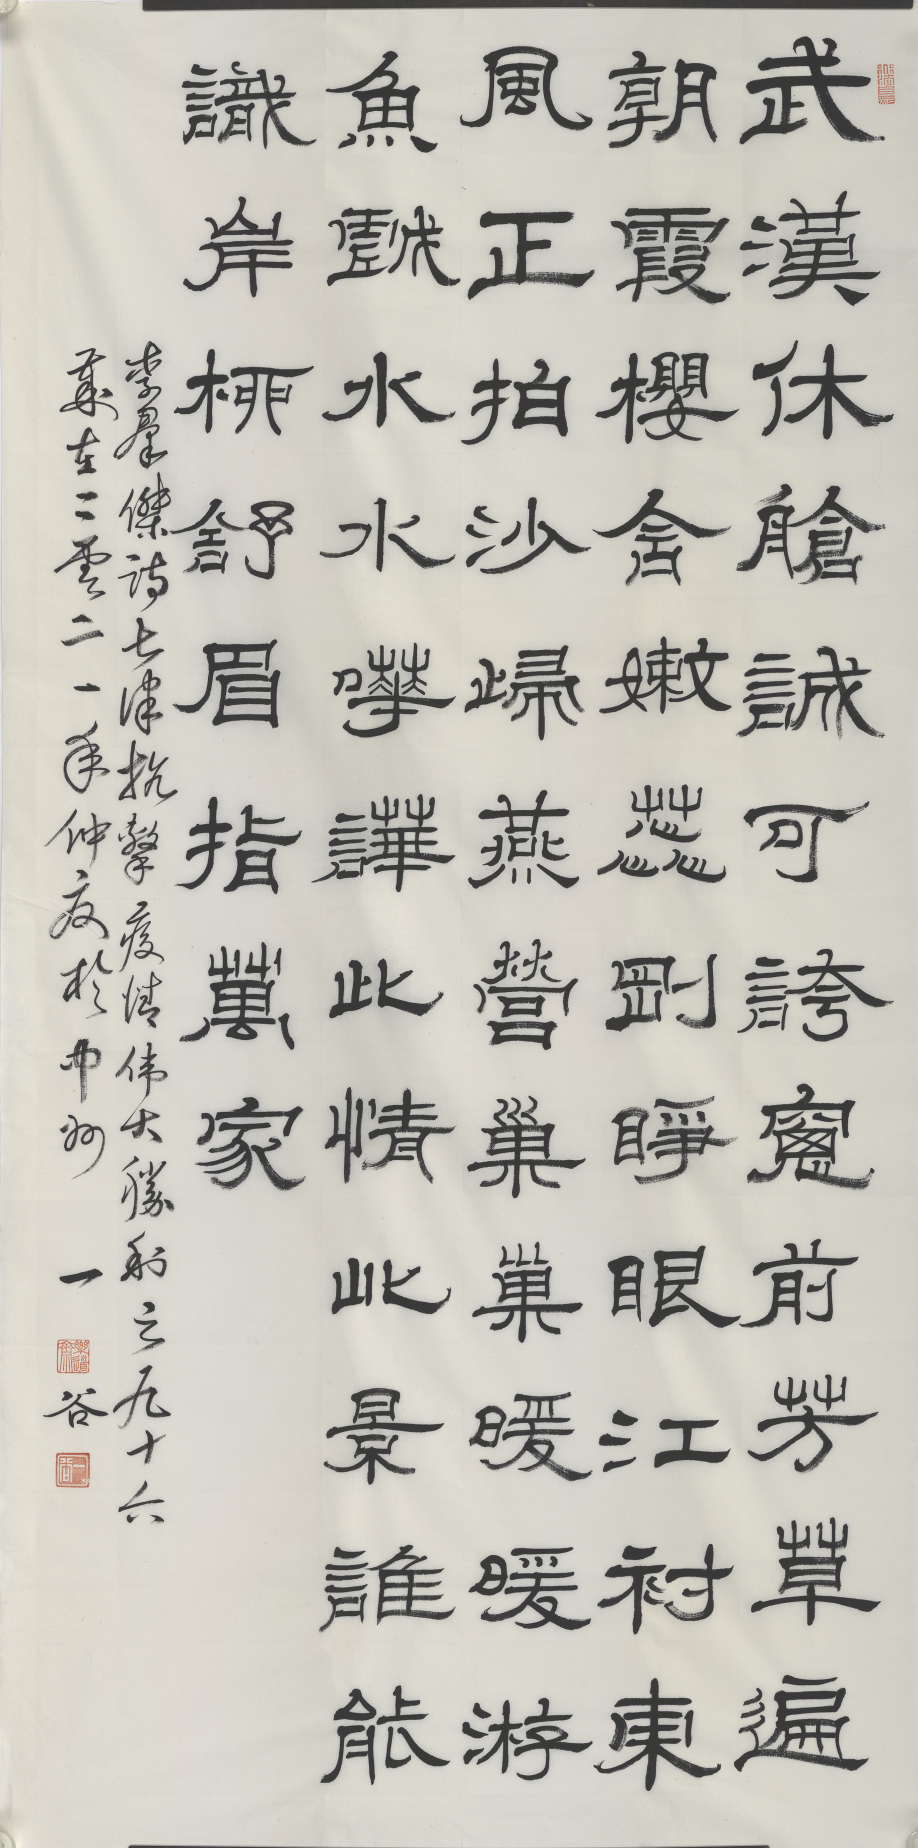 武漢休艙誠可誇窗前芳草遍
朝霞櫻含嫩蕊剛睜眼江衬東
風正拍沙歸燕營巢巢暖暖游
魚戲水水嘩譁此情此景誰能
識岸柳舒眉指萬家
李群傑詩七律抗擊疫情伟大勝利之九十六
歲在二零二一年仲夏於中州 一谷